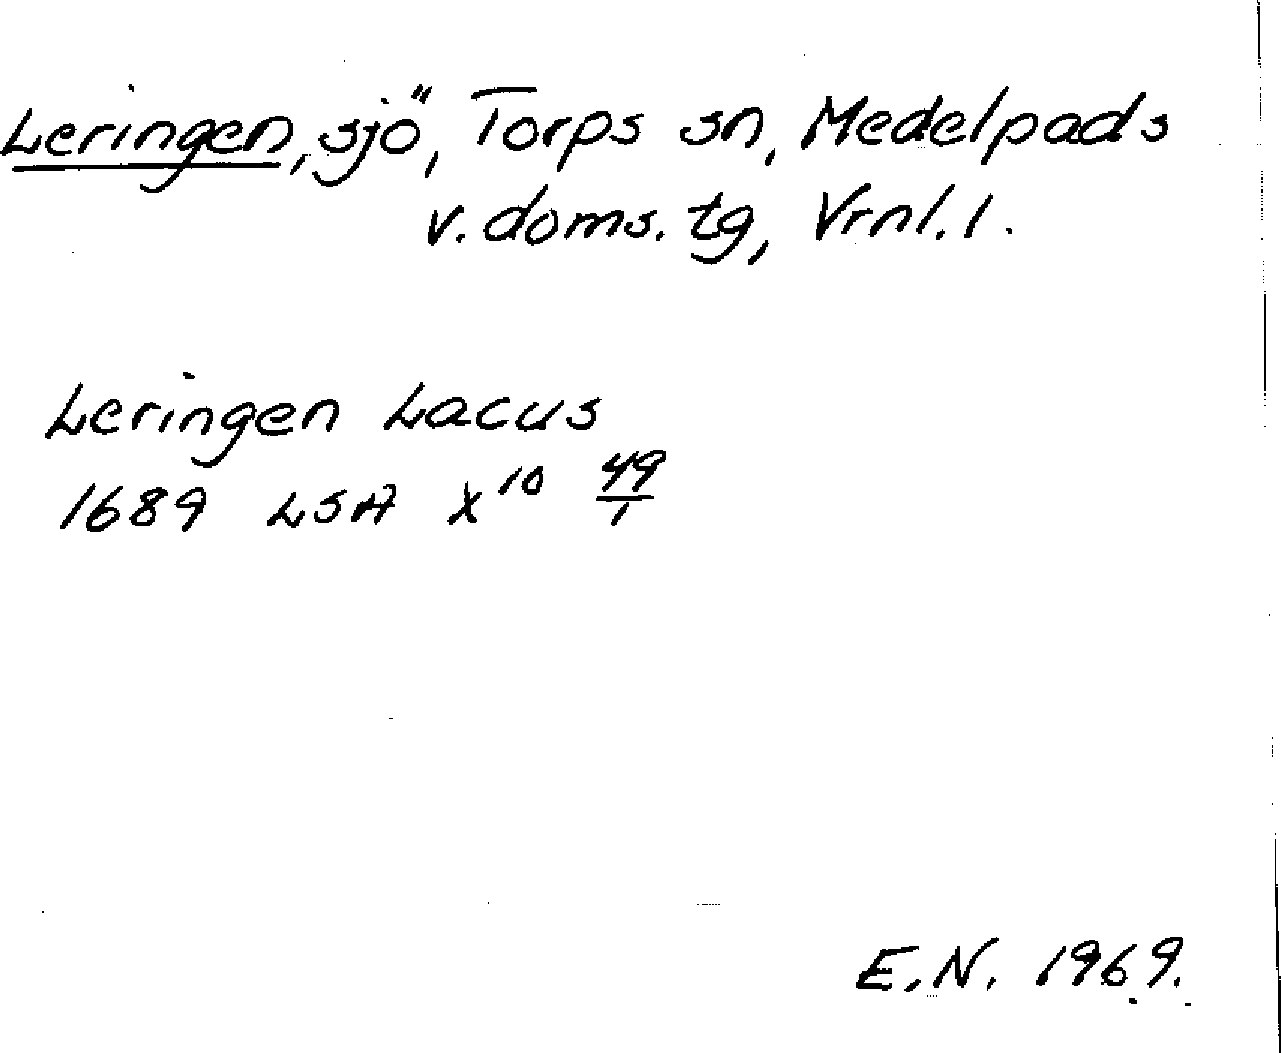 Leringen, sjö, Torps sn, Medelpads
v. doms. tg, Vrnl. l.
Leringen Lacus
1689 LSA X¹⁰ 49/1
E.N. 1969.